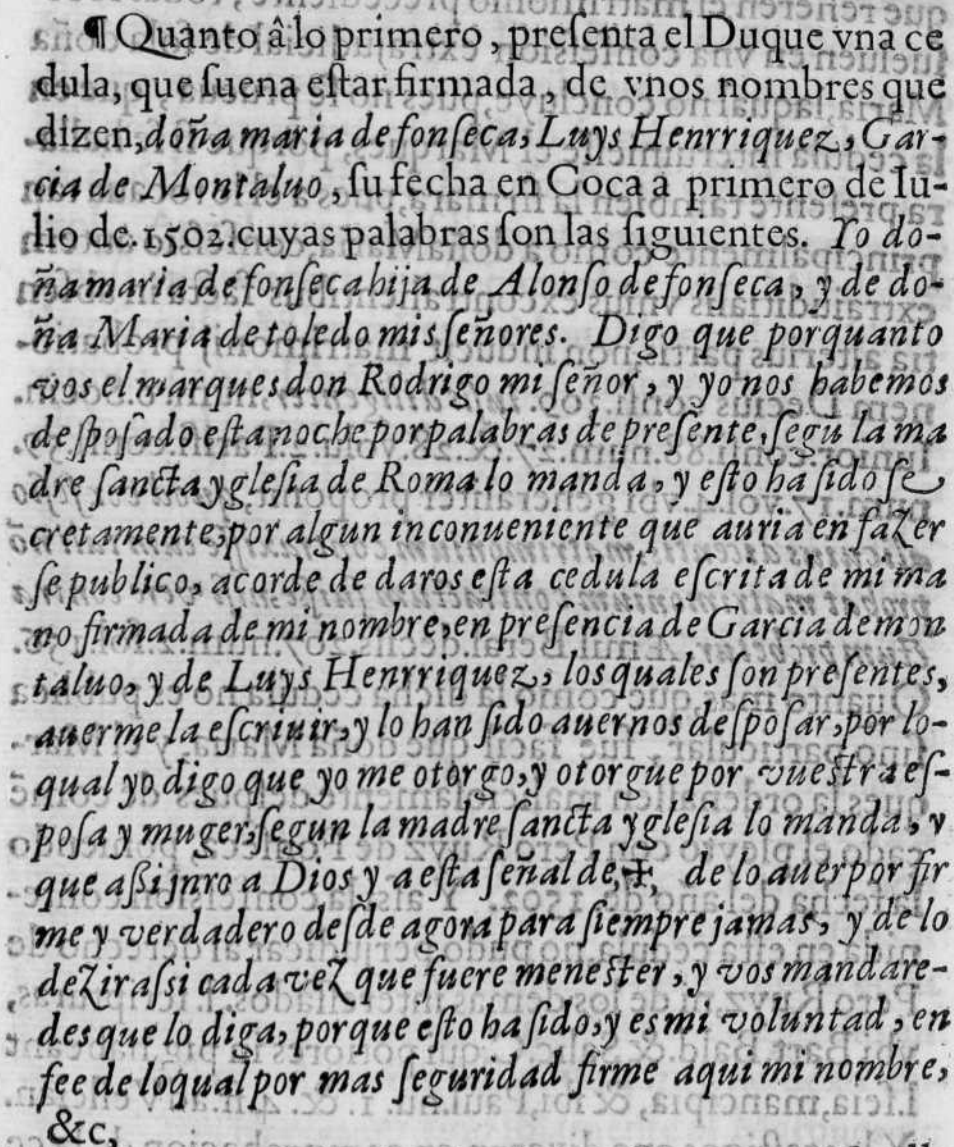 ¶ Quanto â lo primero, preſenta el Duque vna ce
dula, que ſuena eſtar firmada, de vnos nombres que
dizen, doña maria de fonſeca, Luys Henrriquez, Gar-
cia de Montaluo, ſu fecha en Coca a primero de Iu-
lio de. 1502. cuyas palabras ſon las ſiguientes. Yo do-
ña maria de fonſeca hija de Alonſo de fonſeca, y de do-
ña Maria de toledo mis ſeñores. Digo que porquanto
vos el marques don Rodrigo mi ſeñor, y yo nos habemos
deſpoſado eſta noche por palabras de preſente, ſegũ la ma
dre ſancta ygleſia de Roma lo manda, y eſto ha ſido ſe
cretamente, por algun inconueniente que auria en fazer
ſe publico, acorde de daros eſta cedula eſcrita de mi ma
no firmada de mi nombre, en preſencia de Garcia de mon
taluo, y de Luys Henrriquez, los quales ſon preſentes,
auerme la eſcriuir, y lo han ſido auernos deſpoſar, por lo-
qual yo digo que yo me otorgo, y otorgue por vueſtra eſ-
poſa y muger, ſegun la madre ſancta ygleſia lo manda, y
que aſſi juro a Dios y a eſta ſeñal de, ✝, de lo auer por fir
me y verdadero deſde agora para ſiempre jamas, y de lo
dezir aſsi cada vez que fuere meneſter, y vos mandare-
des que lo diga, porque eſto ha ſido, y es mi voluntad, en
fee de loqual por mas ſeguridad firme aqui mi nombre,
&c,